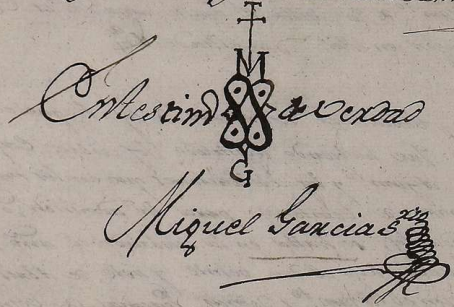 M
En testimo de verdad
G
Miguel Garcias